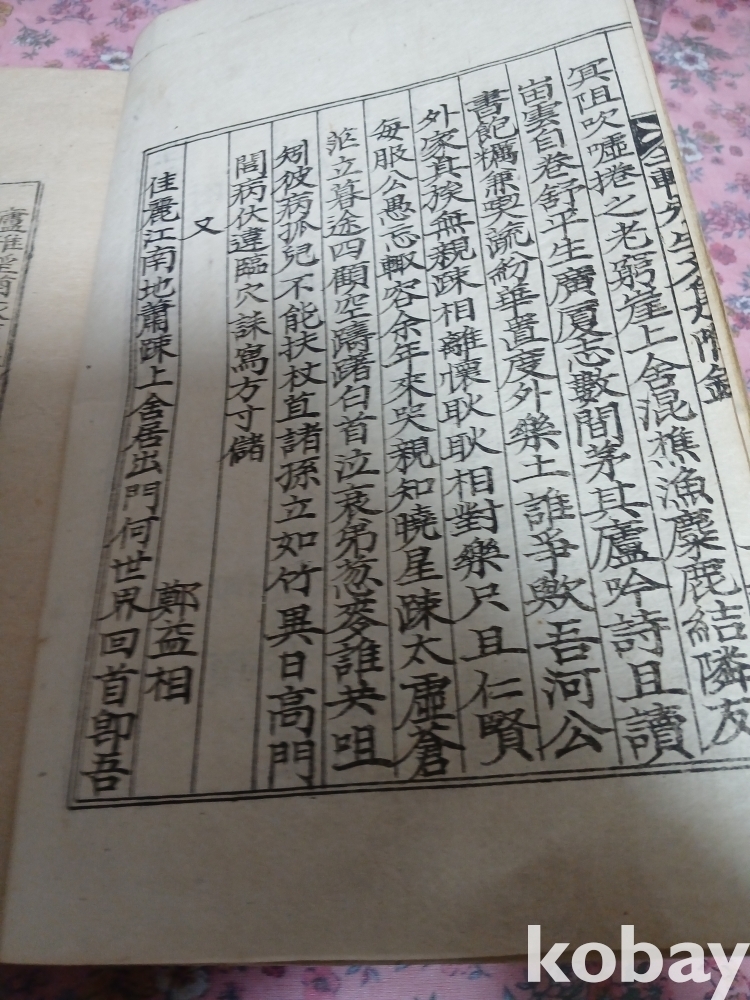 軒先生文集附錄
冥阻吹噓捲之老窮崖上舍混樵漁麋鹿結隣友
由雲自卷舒平生廣厦志數間茅其廬吟詩且讀
書飽糲兼喫蔬紛華置度外樂土誰爭歟吾河公
外家其族無親踈相離懷耿耿相對樂只且仁賢
每服公愚忘輒容余年來哭親知曉星踈太虛蒼
茫立暮途四顧空躊躇白首泣哀弟葱麥誰共咀
矧彼病孤兒不能扶杖苴諸孫立如竹異日高門
閭病伏違臨穴誄寫方寸儲
又
鄭益相
佳麗江南地蕭踈上舍居出門何世界回首卽吾
廬
kobay